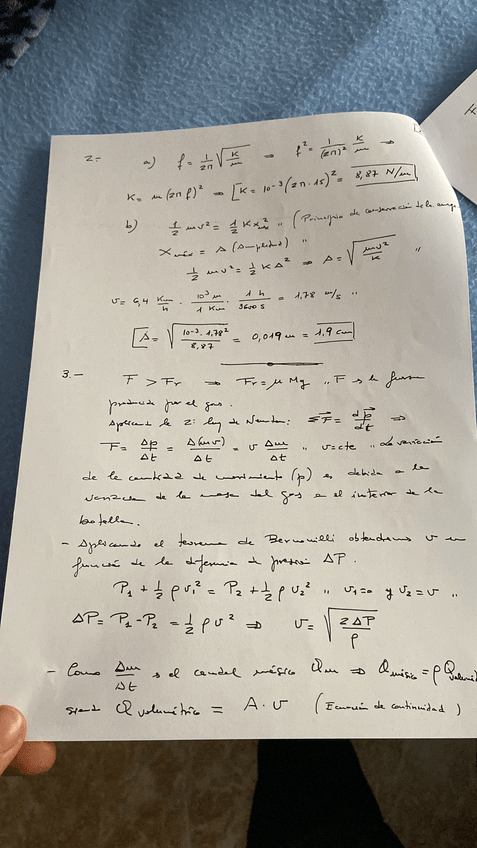 2= a) f = 1/2π √(K/m) ⇒ f² = 1/(2π)² K/m ⇒
K = m (2π f)² ⇒ [K = 10⁻³ (2π·15)² = 8,87 N/m]
b) 1/2 m v² = 1/2 K x²máx " (Principio de conservación de la energ
Xmáx = A (Amplitud) "
1/2 m v² = 1/2 K A² ⇒ A = √(mv²/K) "
v = 6,4 Km/h · 10³ m/1 Km · 1 h/3600 s = 1,78 m/s "
[A = √(10⁻³·1,78²/8,87) = 0,019 m = 1,9 cm]
3.- F > Fr ⇒ Fr = μ Mg " F es la fuerza
producida por el gas.
Aplicando la 2ª ley de Newton: ΣF⃗ = dp⃗/dt ⇒
F = Δp/Δt = Δ(mv)/Δt = v Δm/Δt " v = cte " La variación
de la cantidad de movimiento (p) es debida a la
variación de la masa del gas en el interior de la
botella.
- Aplicando el teorema de Bernouilli obtendremos v en
función de la diferencia de presión ΔP.
P₁ + 1/2 ρ v₁² = P₂ + 1/2 ρ v₂² " v₁=0 y v₂=v "
ΔP = P₁ - P₂ = 1/2 ρ v² ⇒ v = √(2ΔP/ρ)
- Como Δm/Δt es el caudal másico Qm ⇒ Qmásico = ρ Qvolumét
siendo Qvolumétrico = A · v (Ecuación de continuidad)